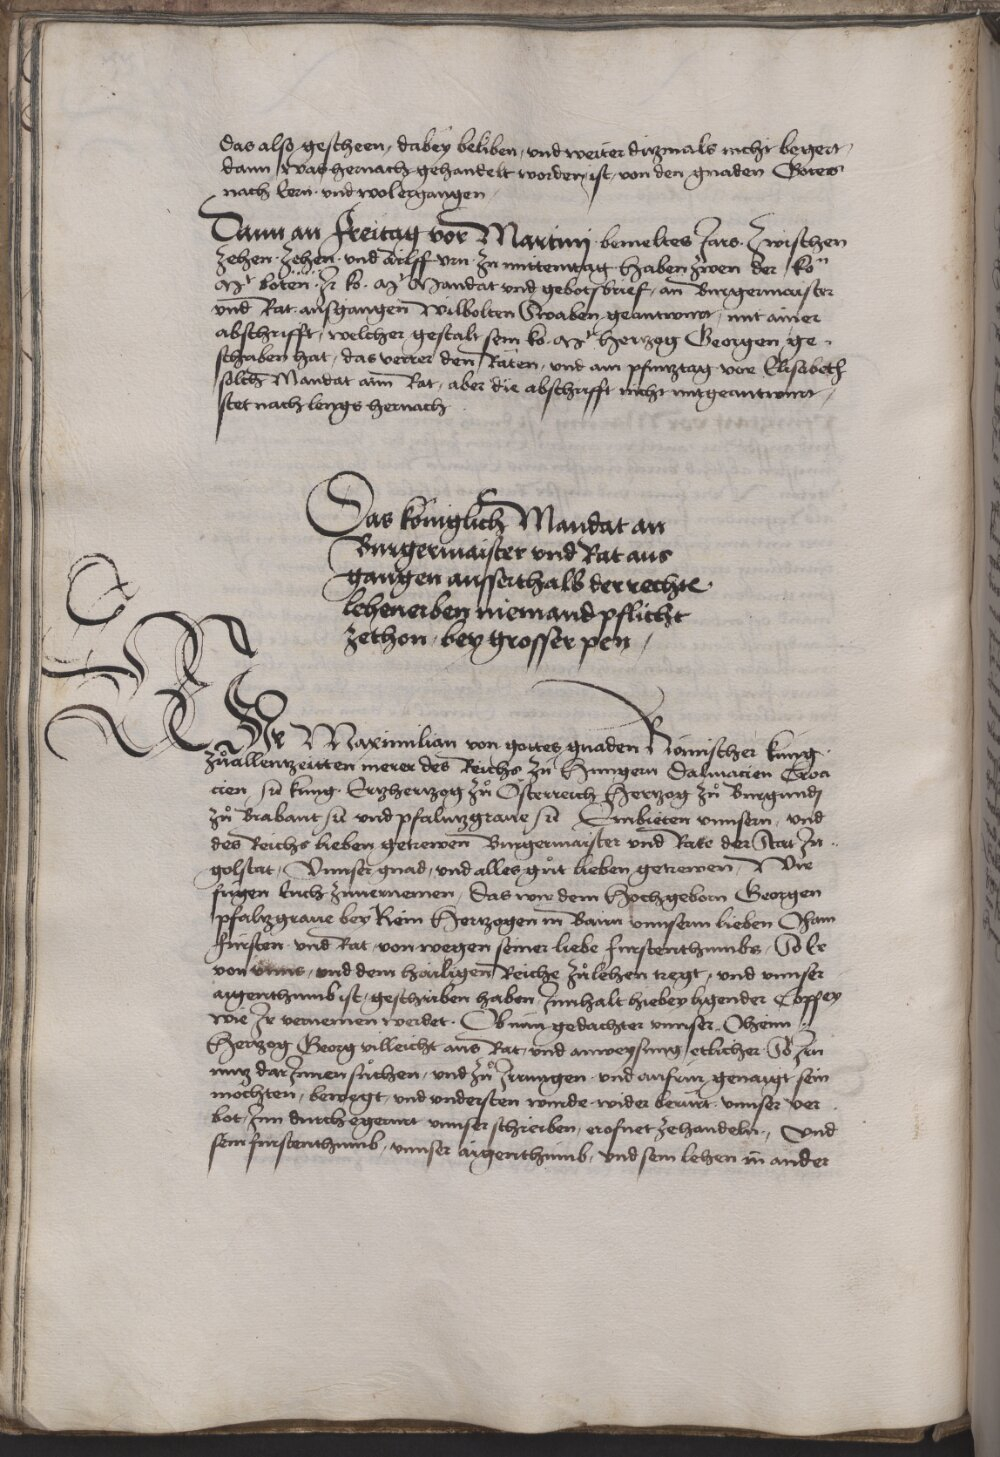 das also gescheen, dabey beliben, und weiter ditzmals nicht begert,
dann was hernach gehandelt worden ist, von den gnaden Gotes
nach lern und wolergangen,
Dann an Freitag vor Martini bemeltes Jars. Zwischen
zehen zehen und ailff urn zu mittemtag Haben zwen der ko
Mt boten Jr ko. Mt Mandat und gebotsbrief, an Burgermaister
und Rat ausgangen Wilbolten Swaben geantwurt, mit ainer
abschrifft, welcher gestalt sein ko. Mt Hertzog Georgen ge
schriben hat, das verrer den Räten, und am pfintztag vor Elisabeth
solch Mandat aim Rat, aber die abschrifft nicht mitgeantwurt,
stet nach lengs hernach
Das königlich Mandat an
Burgermaister und Rat aus
gangen ausserthalb der rechte
lehenerben niemand pflicht
zethon, bey grosser pen,
Wir Maximilian von gottes gnaden Römischer kunig
zuallenntzeitten merer des Reichs zu Hungern Dalmacien Croa
cien &c kunig. Ertzhertzog zu Österreich Hertzog zu Burgundi
zu Brabant &c und pfaltzgrave &c Embieten unnsern und
des Reichs lieben getrewen Burgermaister und Rate der Stat In
golstat, Unnser gnad, und alles gut lieben getrewen, Wir
fügen Euch zuvernemen, Das wir dem Hochgeborn Georgen
pfaltzgrave bey Rein Hertzogen in Bairn unnserm lieben Oham
fursten und Rat von wegen seiner liebe furstenthumbs, So Er
von unns, und dem hailigen Reiche zulehen tregt, und unnser
aigenthumb ist, geschriben haben, Innhalt hiebey ligender Coppey
wie Ir vernemen werdet. Ob nun gedachter unnser Ohem
Hertzog Georg villeicht aus Rat und anweysung etlicher So Irn
nutz dar Innen suchen, und zu Irrungen und aufrur genaigt sein
mochten, bewegt und understen wurde wider berürt unnser ver
bot, Im durch egerurt unnser schreiben, erofnet zehandeln, Und
sein furstenthumb, unnser aigenthumb, und sein lehen in ander